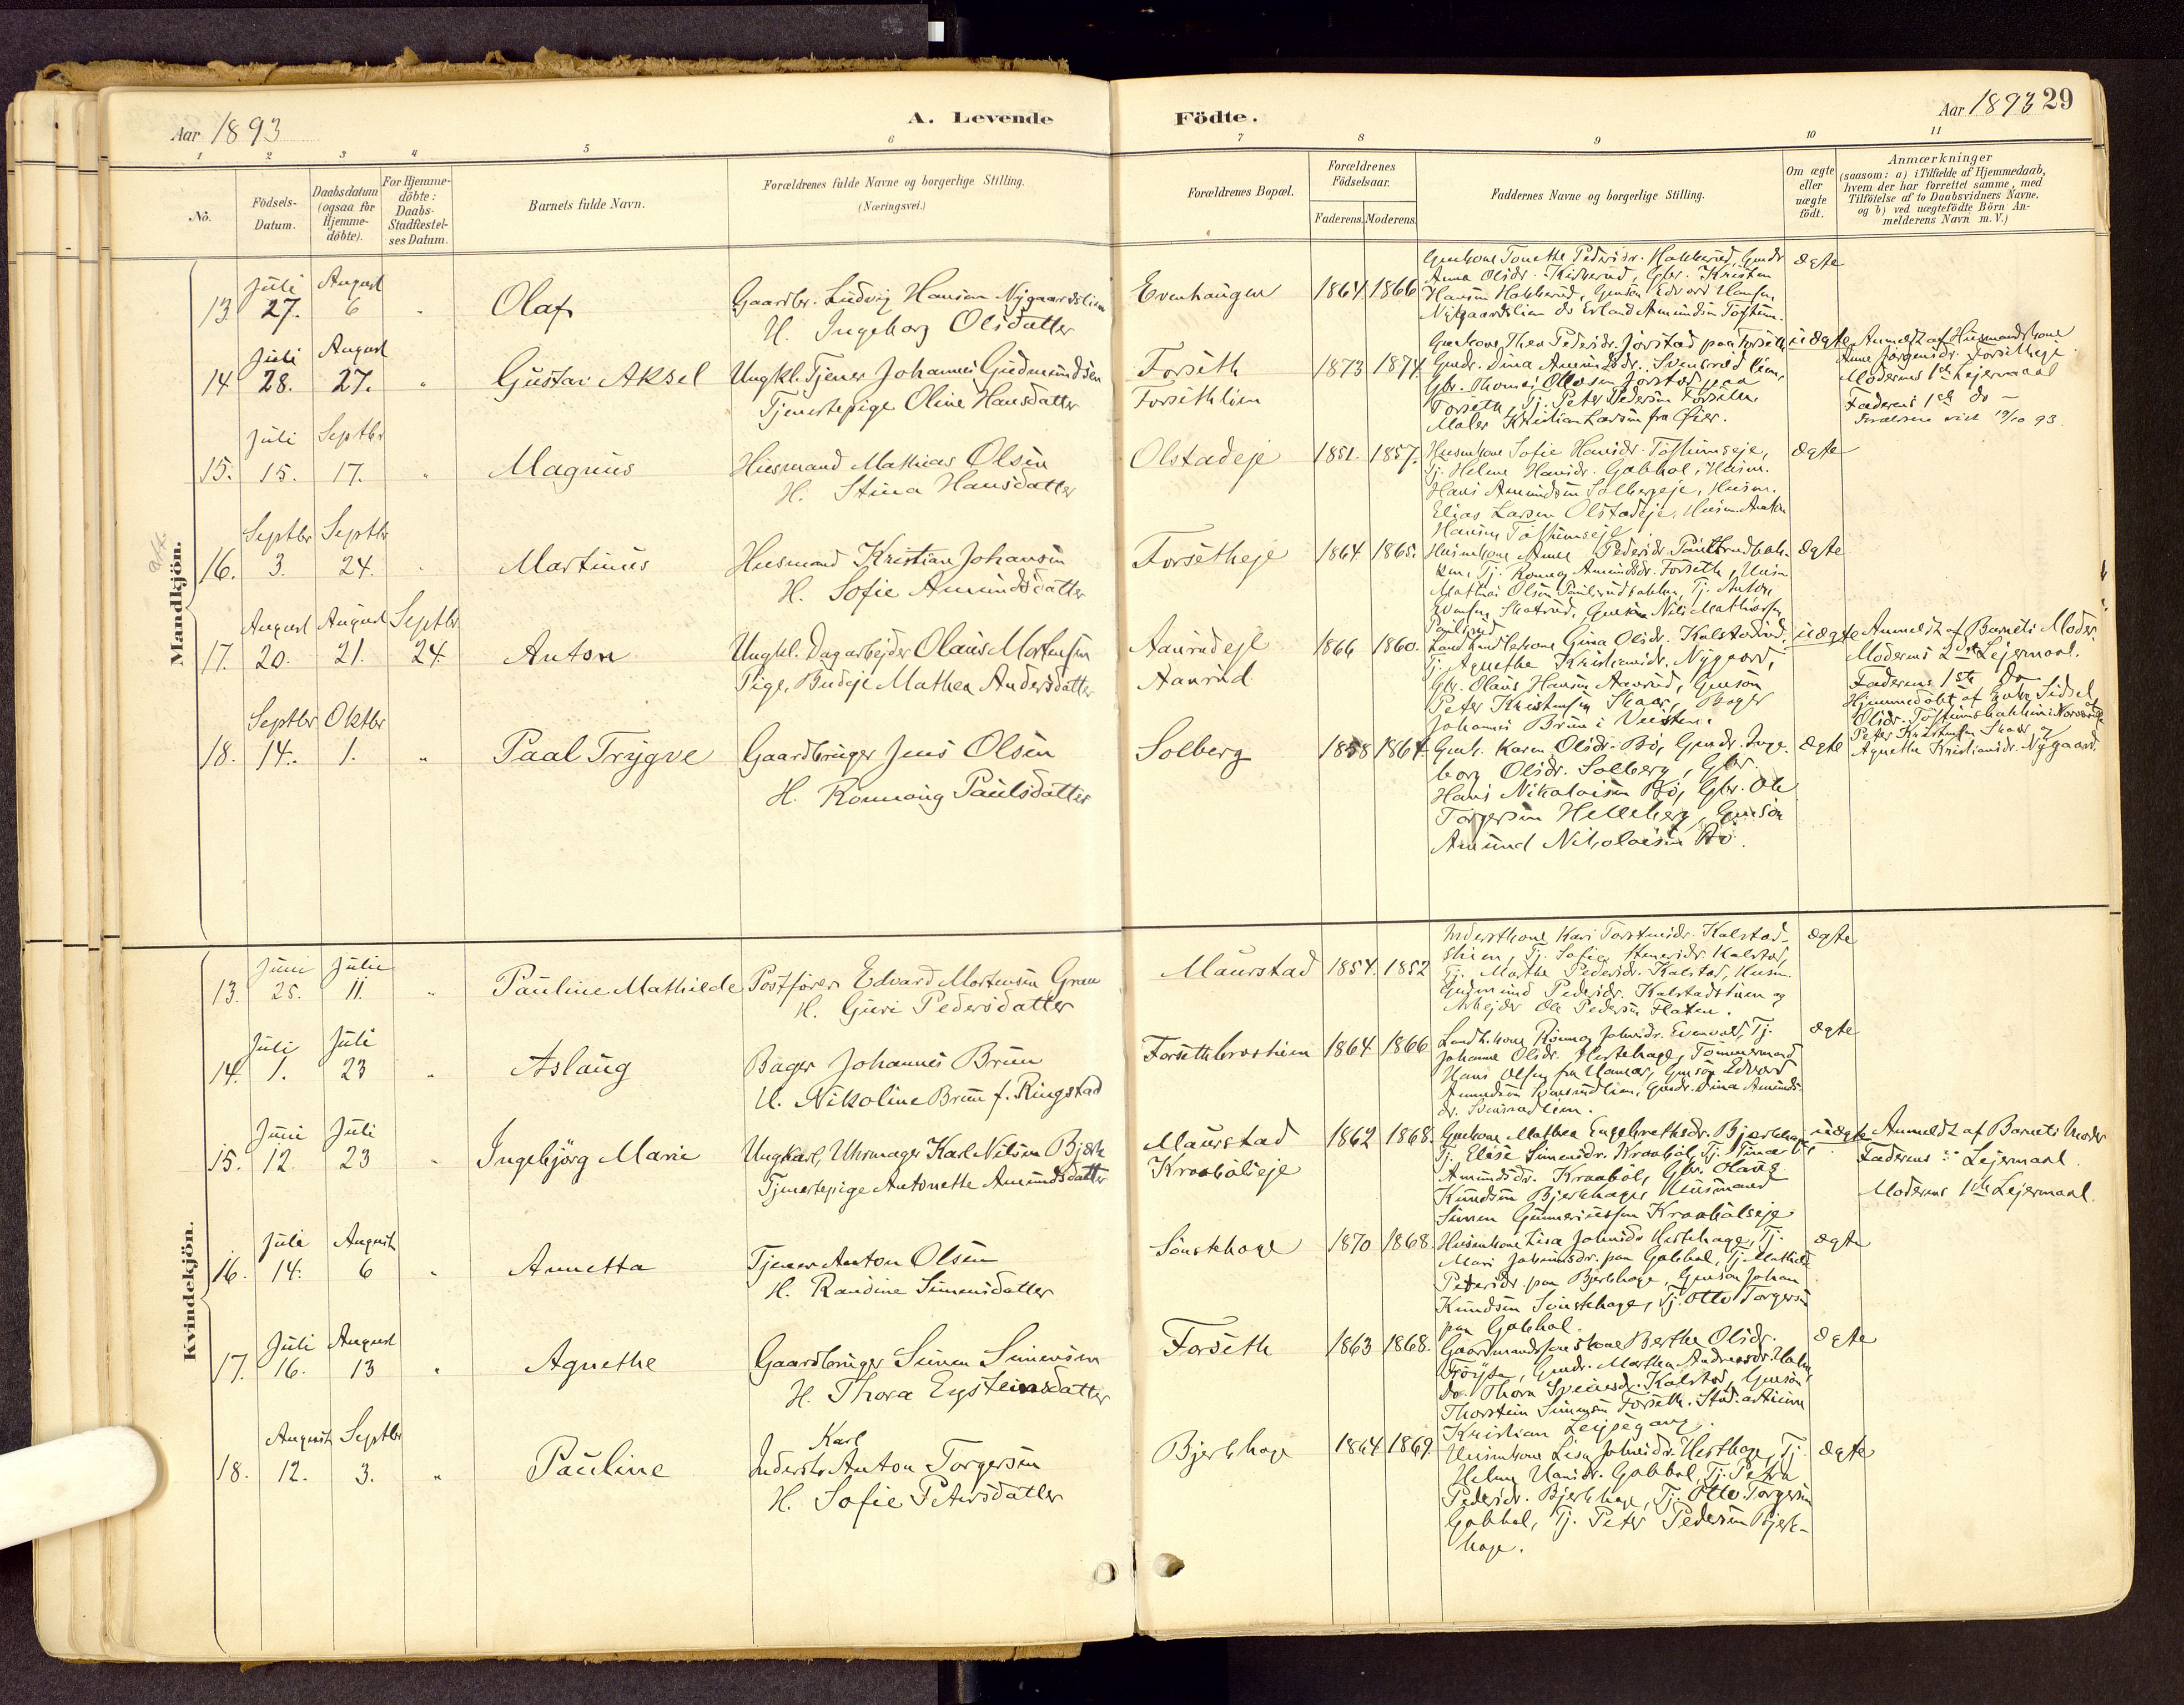 Aar 1893
A. Levende
Födte.
Aar 1893 29
1 2 3 4 5 6 7 8 9 10 11
No.
Födsels-
Datum.
Daabsdatum
(ogsaa for
Hjemme-
döbte).
For Hjemme-
döbte:
Daabs-
Stadfæstel-
ses Datum.
Barnets fulde Navn.
Forældrenes fulde Navne og borgerlige Stilling.
(Næringsvei.)
Forældrenes Bopæl.
Forældrenes
Födselsaar.
Faderens. Moderens.
Faddernes Navne og borgerlige Stilling.
Om ægte
eller
uægte
födt.
Anmærkninger
(saasom: a) i Tilfælde af Hjemmedaab,
hvem der har forrettet samme, med
Tilföielse af to Daabsvidners Navne,
og b) ved uægtefödte Börn An-
melderens Navn m. V.)
Mandkjön.
Juli August
13 27. 6 " Olaf
Gaardbr. Ludvig Hansen Nygaardslien
H. Ingeborg Olsdatter
Evenhaugen 1864. 1866.
Anna Olsdr. Kirkerud, Gbr. Kristen
Nygaardslien do Erland Amundsen Tostrum.
ægte
Juli August
14 28. 27. " Gustav Aksel
Ungkl. Tjener Johannes Gudmundsen
Tjenestepige Oline Hansdatter
Forseth
Forsethlien
1873 1874
Gmkone Thea Pedersdr. Jorstad paa Forseth
Gmdr. Dina Amundsdr. Svensrudlien,
Gbr. Thomas Olsen Jorstad paa
Forseth, Tj. Peter Pedersen Forseth,
Maler Kristian Larsen fra Öier.
uægte
Anmeldt af Husmandskone
Anne Jörgensdr. Forsethege.
Moderens 1ste Lejermaal
Faderens 1ste do
Juli Septbr
15. 15. 17. " Magnus
Husmand Mathias Olsen
H. Stina Hansdatter
Olstadeje 1851. 1857.
Husmkone Sofie Hansdr. Tostrumseje,
Tj. Helene Hansdr. Gabbol, Husm.
Hans Amundsen Solbergeje, Husm.
Elias Larsen Olstadeje, Husm. Anton
Hansen Tostrumseje
ægte
Septbr Septbr
16. 3. 24. " Martinus
Husmand Kristian Johansen
H. Sofie Amundsdatter
Forsetheje 1864 1865.
Husmkone Anne Pedersdr. Paulsrudbak-
ken, Tj. Ronnog Amundsdr. Forseth, Husm
Mathias Olsen Paulsrudbakken, Tj. Anton
Evensen Skotrud, Gmsön Nils Mathiassen
Paulsrud
ægte
August August Septbr
17. 20. 21. 24. Anton
Ungkl. Dagarbejder Olaus Mortensen
Pige, Budeje Mathea Andersdatter
Aanrudeje
Aanrud
1866 1860.
Landhandlskone Gina Olsdr. Kalstadlien,
Tj. Agnethe Kristiansdr. Nygaard,
Gbr. Olaus Hansen Aanrud, Gmsön
Peter Kristensen Skaar, Bager
Johannes Bruun i Veisten.
uægte
Anmeldt af Barnets Moder.
Moderens 2det Lejermaal.
Faderens 1ste Do
Hjemmedöbt af Enke Sidsel
Peter Kristensen Skaar og
Agnethe Kristiansdr. Nygaard.
Septbr Oktbr
18. 14. 1. " Paal Trygve
Gaardbruger Jens Olsen
H. Ronnaug Paulsdatter
Solberg 1858 1864.
Gmk. Karen Olsdr. Bö, Gmdr. Inge-
borg Olsdr. Solberg, Gbr.
Hans Nikolaisen Bö, Gbr. Ole
Torgersen Helleberg, Gmsön
Amund Nikolaisen Bö.
ægte
Kvindekjön.
Juni Juli
13. 25. 11. " Pauline Mathilde
Postförer Edvard Mortensen Gran
H. Guri Pedersdatter
Maurstad 1854. 1852
Inderstkone Kari Torstensdr. Kalstad-
stuen, Tj. Sofie Hansdr. Kalstad,
Tj. Mathe Pedersdr. Kalstad, Husm.
Gudmund Pedersdr. Kalstadstuen og
Arbejder Ole Pedersen Flaten.
ægte
Juli Juli
14. 1. 23 " Aslaug
Bager Johannes Bruun
H. Nikoline Bruun f. Ringstad
Forsethbrostuen 1864 1866
Landh.kone Rönnog Johnsdr. Evenvold, Tj.
Johanne Olsdr. Hestehage, Tömmermand
Hans Olsen fra Hamar, Gmsön Edvard
Amundsen Svensrudlien, Gmdr. Dina Amunds-
dr. Svensrudlien.
ægte
Juni Juli
15. 12. 23 " Ingebjörg Marie
Ungkarl, Uhrmager Karl Nilsen Bjerke
Tjenestepige Antonette Amundsdatter
Maurstad
Kraaböleje
1862 1868.
Gmkone Mathea Engebrethsdr. Bjerkhage,
Tj. Elise Simensdr. Kraaböl, Tj. Tina
Amundsdr. Kraaböl, Gbr. Olaus
Knudsen Bjerkhage, Husmand
Simen Gunneriussen Kraabölseje
uægte
Anmeldt af Barnets Moder
Faderens Lejermaal.
Moderens 1ste Lejermaal.
Juli August
16. 14. 6 " Annetta
Tjener Anton Olsen
H. Randine Simensdatter
Sönstehage 1870 1868.
Husmkone Lisa Johnsdr Hestehage, Tj.
Mari Johannsdr. paa Gabbol, Tj. Mathilde
Petersdr. paa Bjerkhage, Gmsön Johan
Knudsen Sönstehage, Tj. Otto Torgersen
paa Gabbol.
ægte
Juli August
17. 16. 13 " Agnethe
Gaardbruger Simen Simensen
H. Thora Eysteinsdatter
Forseth 1863 1868.
Gaardmandskone Berthe Olsdr.
Fröyse, Gmdr. Marthea Andreasdr. Holm,
do. Thora Sveinsdr. Kalstad, Gmsön
Thorstein Simensen Forseth. Stud. artium
Kristian Leipegang.
ægte
August Septbr
18. 12. 3. " Pauline
Karl
Inderst Anton Torgersen
H. Sofie Petersdatter
Bjerkhage 1864 1869.
Husmkone Lisa Johnsdr. Hesthage, Tj.
Helene Hansdr. Gabbol, Tj. Petra
Pedersdr. Bjerkhage, Tj. Otto Torgersen
Gabbol, Tj. Peter Pedersen Bjerk-
hage.
ægte